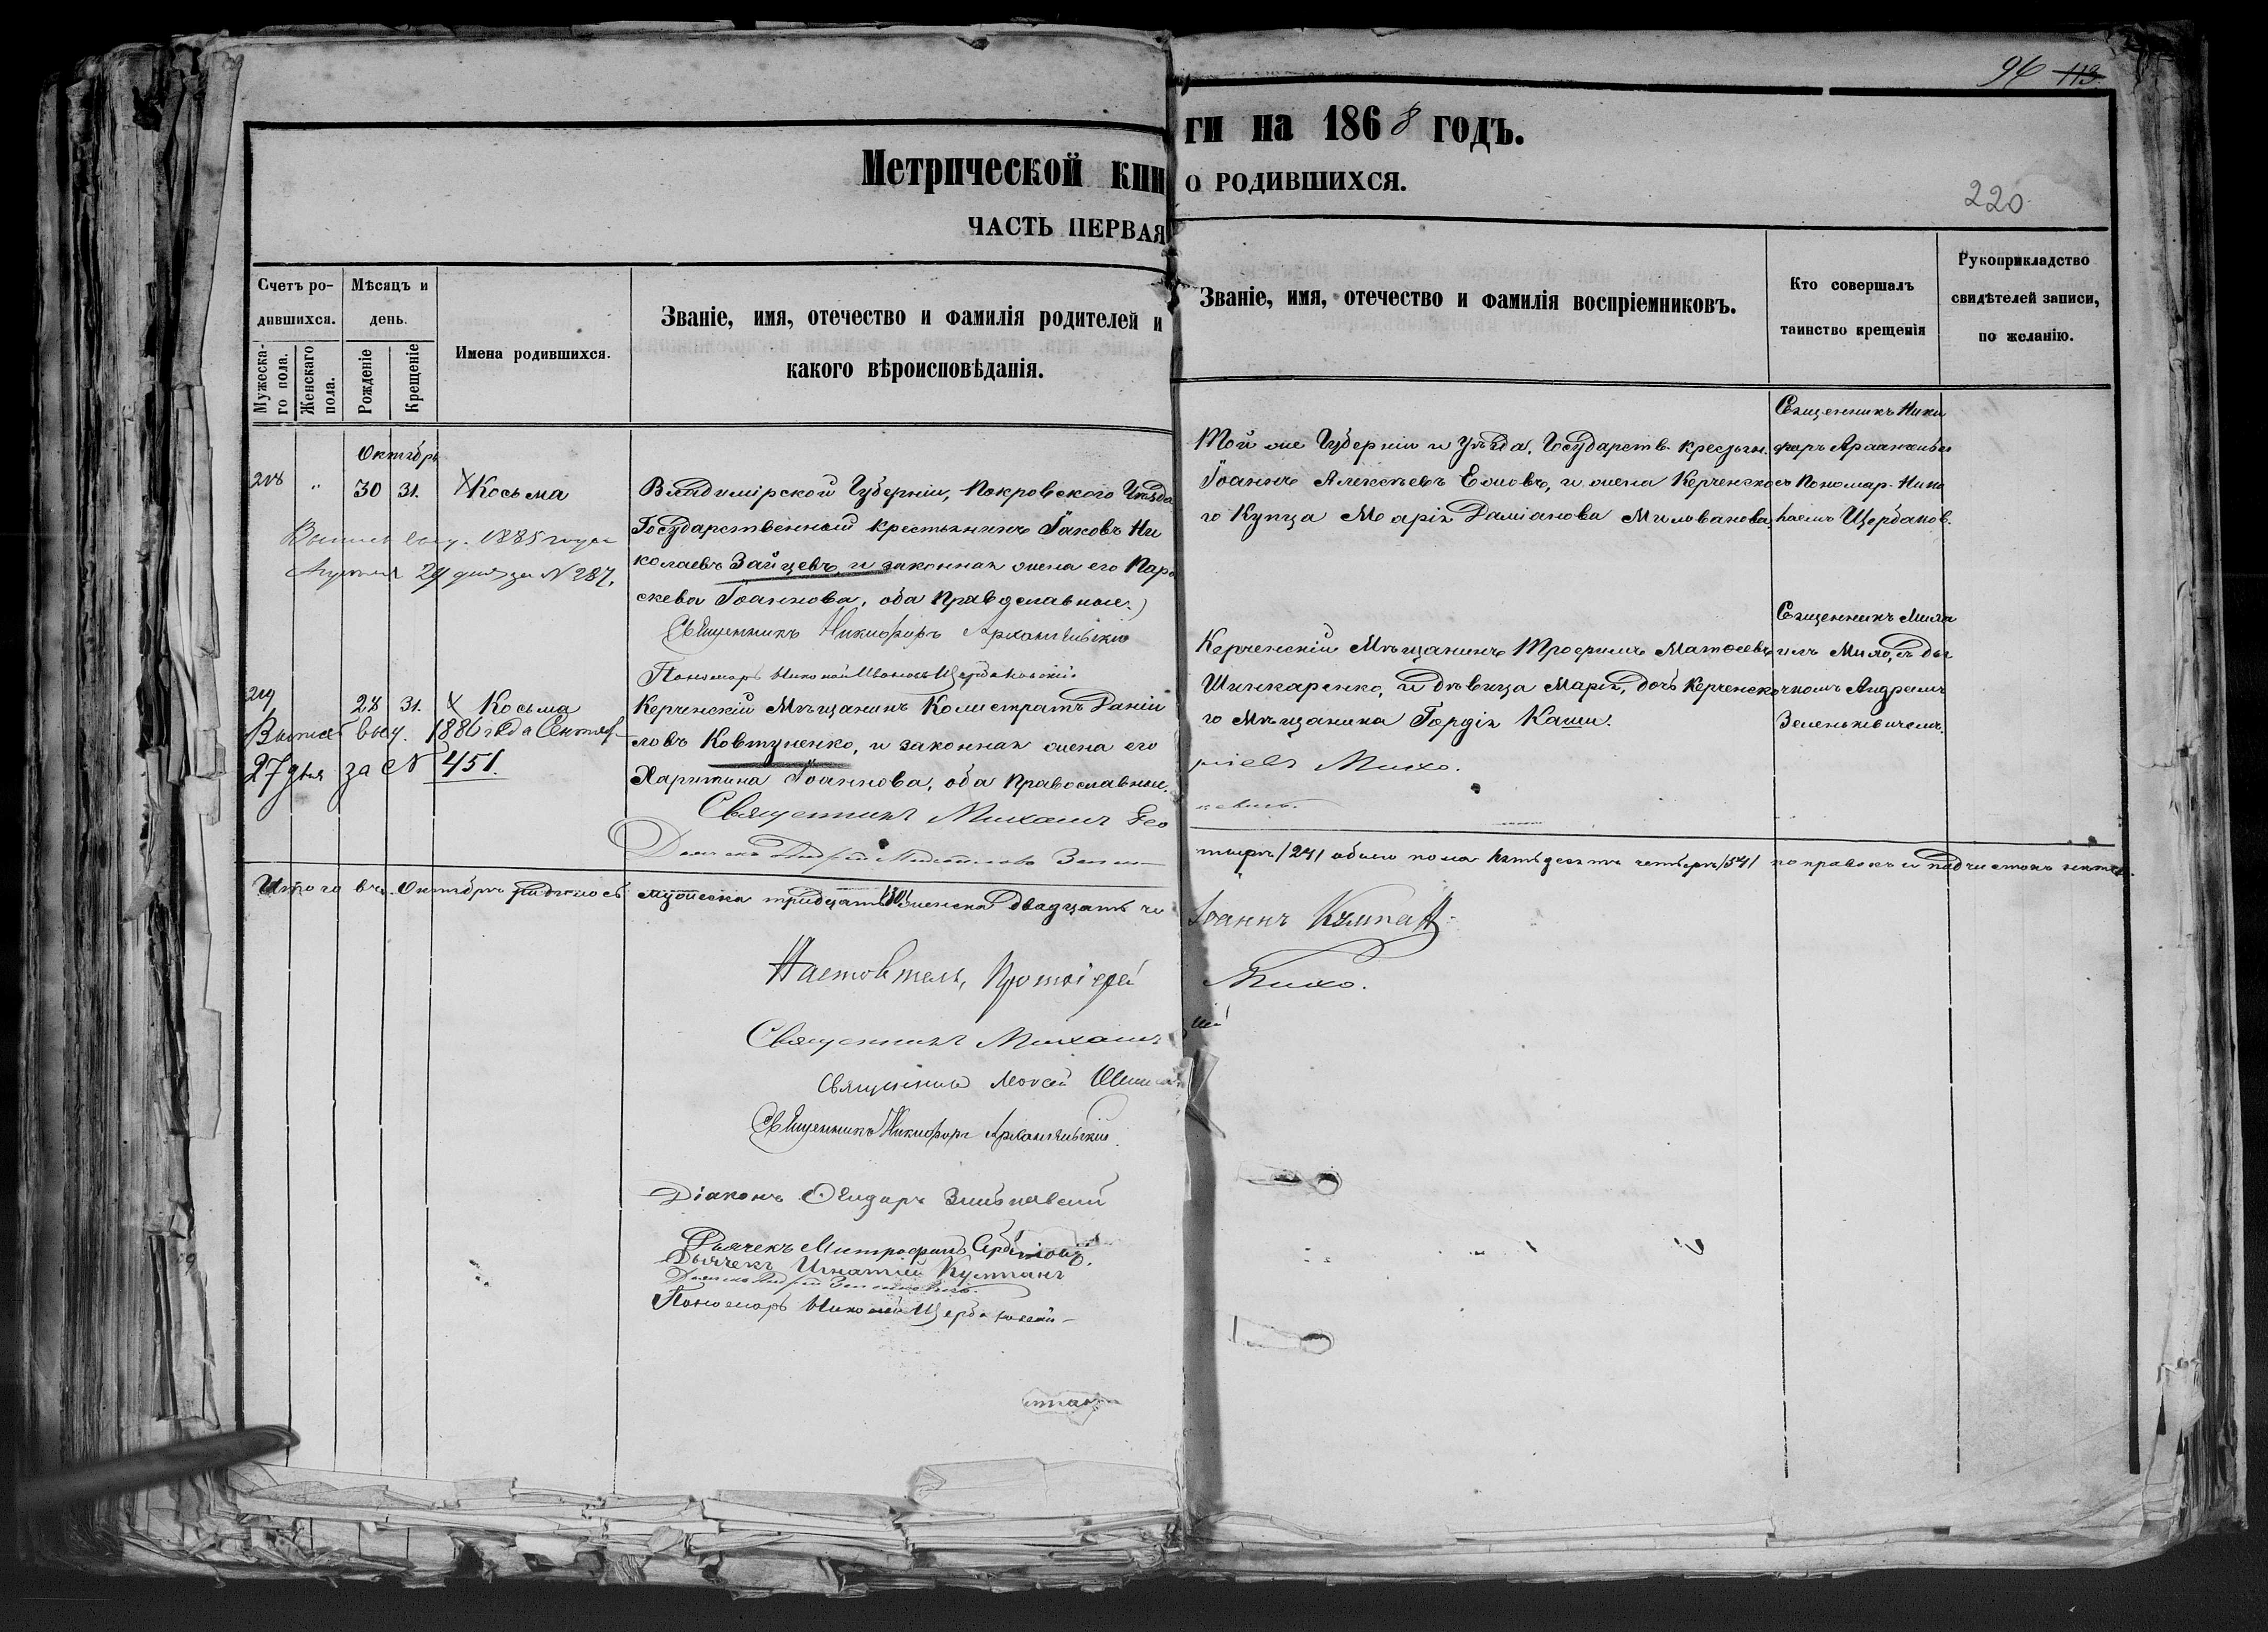 94 113
Метрической книги на 1868 годъ.
ЧАСТЬ ПЕРВАЯ О РОДИВШИХСЯ.
220
Счетъ родившихся.
Мужескаго пола.
Женскаго пола.
Мѣсяцъ и день.
Рожденіе
Крещеніе
Имена родившихся.
Званіе, имя, отечество и фамилія родителей и какого вѣроисповѣданія.
Званіе, имя, отечество и фамилія воспріемниковъ.
Кто совершалъ таинство крещенія
Рукоприкладство свидѣтелей записи, по желанію.
Октябрь
218 " 30 31. Косьма
Владимірской Губерніи, Покровскаго Уѣзда
Государственный крестьянинъ Іаковъ Ни
колаевъ Зайцевъ, и законная жена его Пара
скева Іоаннова, оба Православные.
Священникъ Никифоръ Архангельскій
Пономарь Николай Ивановъ Щербаковскій
Той же Губерніи и Уѣзда, Государств. крестьян.
Іоаннъ Алексѣевъ Ежовъ, и жена Керченска
го Купца Марія Даміанова Милованова.
Священникъ Ники
форъ Архангельскі
съ Пономар. Нико
лаемъ Щербаков.
1885 года
24 дня за N 287.
219 28 31. Косьма
1886 года Сентяб
27 дня за N 451.
Керченскій Мѣщанинъ Калистратъ Даніи
ловъ Ковтуненко, и законная жена его
Харитина Іоаннова, оба Православные.
Священникъ Михаилъ Гео
ргіевъ Михо.
Дьячекъ Андрей
Керченскій Мѣщанинъ Трофимъ Матѳеевъ
Шинкаренко, и дѣвица Марія, дочь Керченска
го Мѣщанина Гордія Каши.
Священникъ Миха
илъ Михо, съ дья
чкомъ Андреемъ
Зеленькевичемъ.
Итого въ Октябрѣ родилось мужеска тридцать /30/ женска двадцать че
тыре /24/ обоего пола пятьдесятъ четыре /54/ поправокъ и подчистокъ нѣтъ.
Настоятель, Протоіерей Іоаннъ Кумпанъ
Священникъ Михаилъ Михо.
Священникъ Моѵсей
Священникъ Никифоръ Архангельскій
Діаконъ Ѳеодоръ
Дьячекъ Митрофанъ
Дьячекъ Игнатій Кумпанъ
Дьячекъ Андрей
Пономарь Николай Щербаковскій